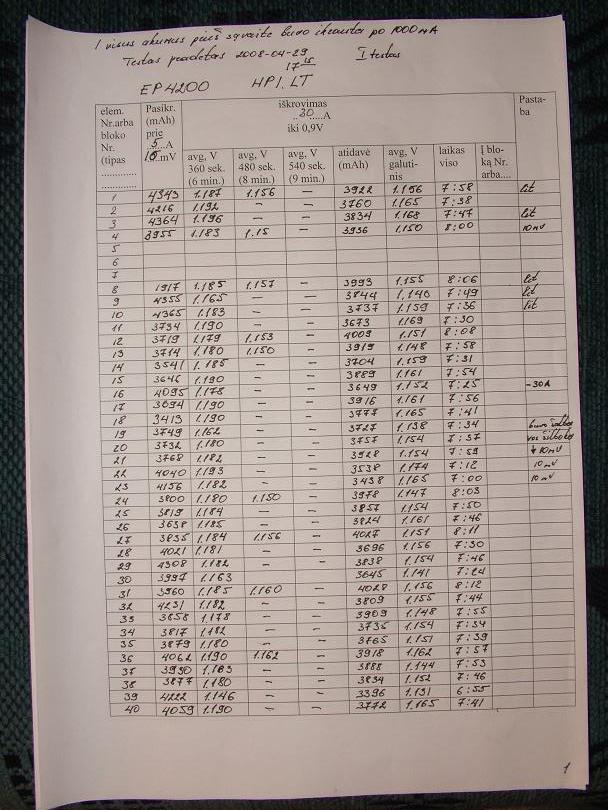 Į visus akumus prieš savaitę buvo įkrauta po 1000 mA
Testas pradėtas 2008-04-29 I testas
17 15
EP 4200 HPI.LT
elem. Nr.arba bloko Nr. (tipas ............ ............
Pasikr. (mAh) prie 5 A 10 mV
iškrovimas ..30....A iki 0,9V
Pasta-ba
avg, V 360 sek. (6 min.) avg, V 480 sek. (8 min.) avg, V 540 sek. (9 min.) atidavė (mAh) avg, V galuti-nis laikas viso Į blo-ką Nr. arba....
1 4343 1.187 1.156 – 3922 1.156 7:58 šilt
2 4216 1.192 – – 3760 1.165 7:38
3 4364 1.196 – – 3834 1.168 7:47 šilt
4 3955 1.183 1.15 – 3936 1.150 8:00 10 mV
5
6
7
8 1917 1.185 1.157 – 3993 1.155 8:06 šilt
9 4355 1.165 – – 3844 1.140 7:49 šilt
10 4365 1.183 – – 3737 1.159 7:36 šilt
11 3734 1.190 – – 3673 1.169 7:30
12 3719 1.179 1.153 – 4009 1.151 8:08
13 3714 1.180 1.150 – 3919 1.148 7:58
14 3541 1.185 – – 3704 1.159 7:31
15 3646 1.190 – – 3889 1.161 7:54
16 4095 1.178 – – 3649 1.152 7:25 -30A
17 3694 1.190 – – 3916 1.161 7:56
18 3413 1.190 – – 3777 1.165 7:41
19 3749 1.162 – – 3727 1.138 7:34 buvo šaltas
20 3732 1.180 – – 3757 1.154 7:37 vos šiltokas
21 3768 1.182 – – 3928 1.154 7:59 10 mV
22 4040 1.193 – – 3538 1.174 7:12 10 mV
23 4156 1.182 – – 3438 1.165 7:00 10 mV
24 3800 1.180 1.150 – 3978 1.147 8:03
25 3819 1.184 – – 3857 1.154 7:50
26 3638 1.185 – – 3824 1.161 7:46
27 3835 1.184 1.156 – 4027 1.151 8:11
28 4021 1.181 – – 3696 1.156 7:30
29 4308 1.182 – – 3838 1.154 7:46
30 3997 1.163 3645 1.141 7:24
31 3960 1.185 1.160 – 4028 1.156 8:12
32 4231 1.182 – – 3809 1.155 7:44
33 3858 1.178 – – 3909 1.148 7:55
34 3817 1.182 – – 3735 1.154 7:34
35 3879 1.180 – – 3765 1.151 7:39
36 4062 1.190 1.162 – 3918 1.162 7:57
37 3930 1.183 – – 3888 1.144 7:53
38 3877 1.180 – – 3834 1.152 7:46
39 4222 1.146 – – 3396 1.131 6:55
40 4059 1.190 – – 3772 1.165 7:41
1